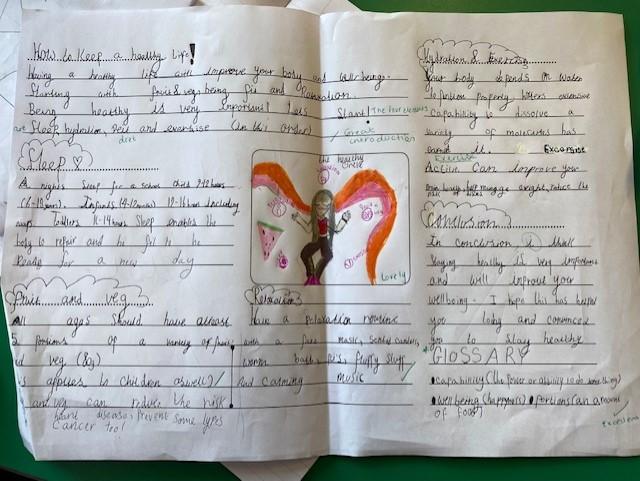 How to keep a healthy life!
Having a healthy life will improve your body and well-being.
Starting with fruit & veg being, and Relaxation.
Being healthy is very important lets Start!
The four elements
are Sleep, hydration, and exercise (in this order)
diet
Great
introduction
Sleep
A nights sleep for a school child 9-12 hours
(6-12 years). Infants (4-12 months) 12-16 hours including
naps. Toddlers 11-14 hours Sleep enables the
body to repair and be fit to be
Ready for a new day
Fruit and veg
All ages should have atleast
5 portions of a variety of fruits
veg (80g)
applies to children aswell)
and veg can reduce the risk
heart disease, prevent some types
Cancer too!
the healthy
circle
Lovely
Relaxation
Have a relaxation routine
with a music, Scented candles,
warm bath, fluffy stuff
And calming music
Hydration & Exercise
Your body depends on water
to function properly extensive
capability to dissolve a
variety of molecules has
Exercise
Excersise
Active Can improve your
weight, reduce the
risk
Conclusion
In conclusion I think
staying healthy is very important
and will improve your
wellbeing. I hope this has helped
you today and convinced
you to stay healthy
GLOSSARY
capabinity (the power or ability to do something)
wellbeing (happyness) portions (an amount
of food)
Excellent